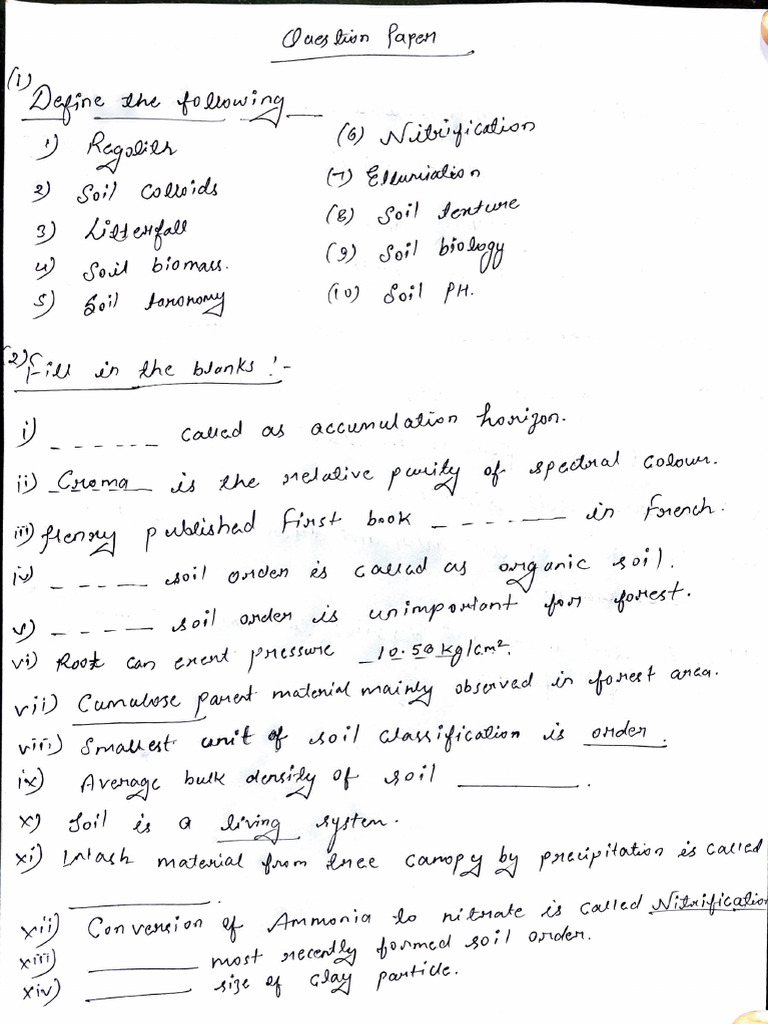 Question Paper
(1) Define the following
1) Regolith
2) Soil colloids
3) Litterfall
4) Soil biomass.
5) Soil taxonomy
(6) Nitrification
(7) Elluviation
(8) Soil texture
(9) Soil biology
(10) Soil PH.
(2) Fill in the blanks :-
i) ______ called as accumulation horizon.
ii) Croma is the relative purity of spectral colour.
iii) Henry published first book ______ in French.
iv) ______ soil order is called as organic soil.
v) ______ soil order is unimportant for forest.
vi) Root can exert pressure 10.50 kg/cm².
vii) Cumulose parent material mainly observed in forest area.
viii) Smallest unit of soil classification is order.
ix) Average bulk density of soil ______.
x) Soil is a living system.
xi) Wash material from tree canopy by precipitation is called
______.
xii) Conversion of Ammonia to nitrate is called Nitrification
xiii) ______ most recently formed soil order.
xiv) ______ size of clay particle.